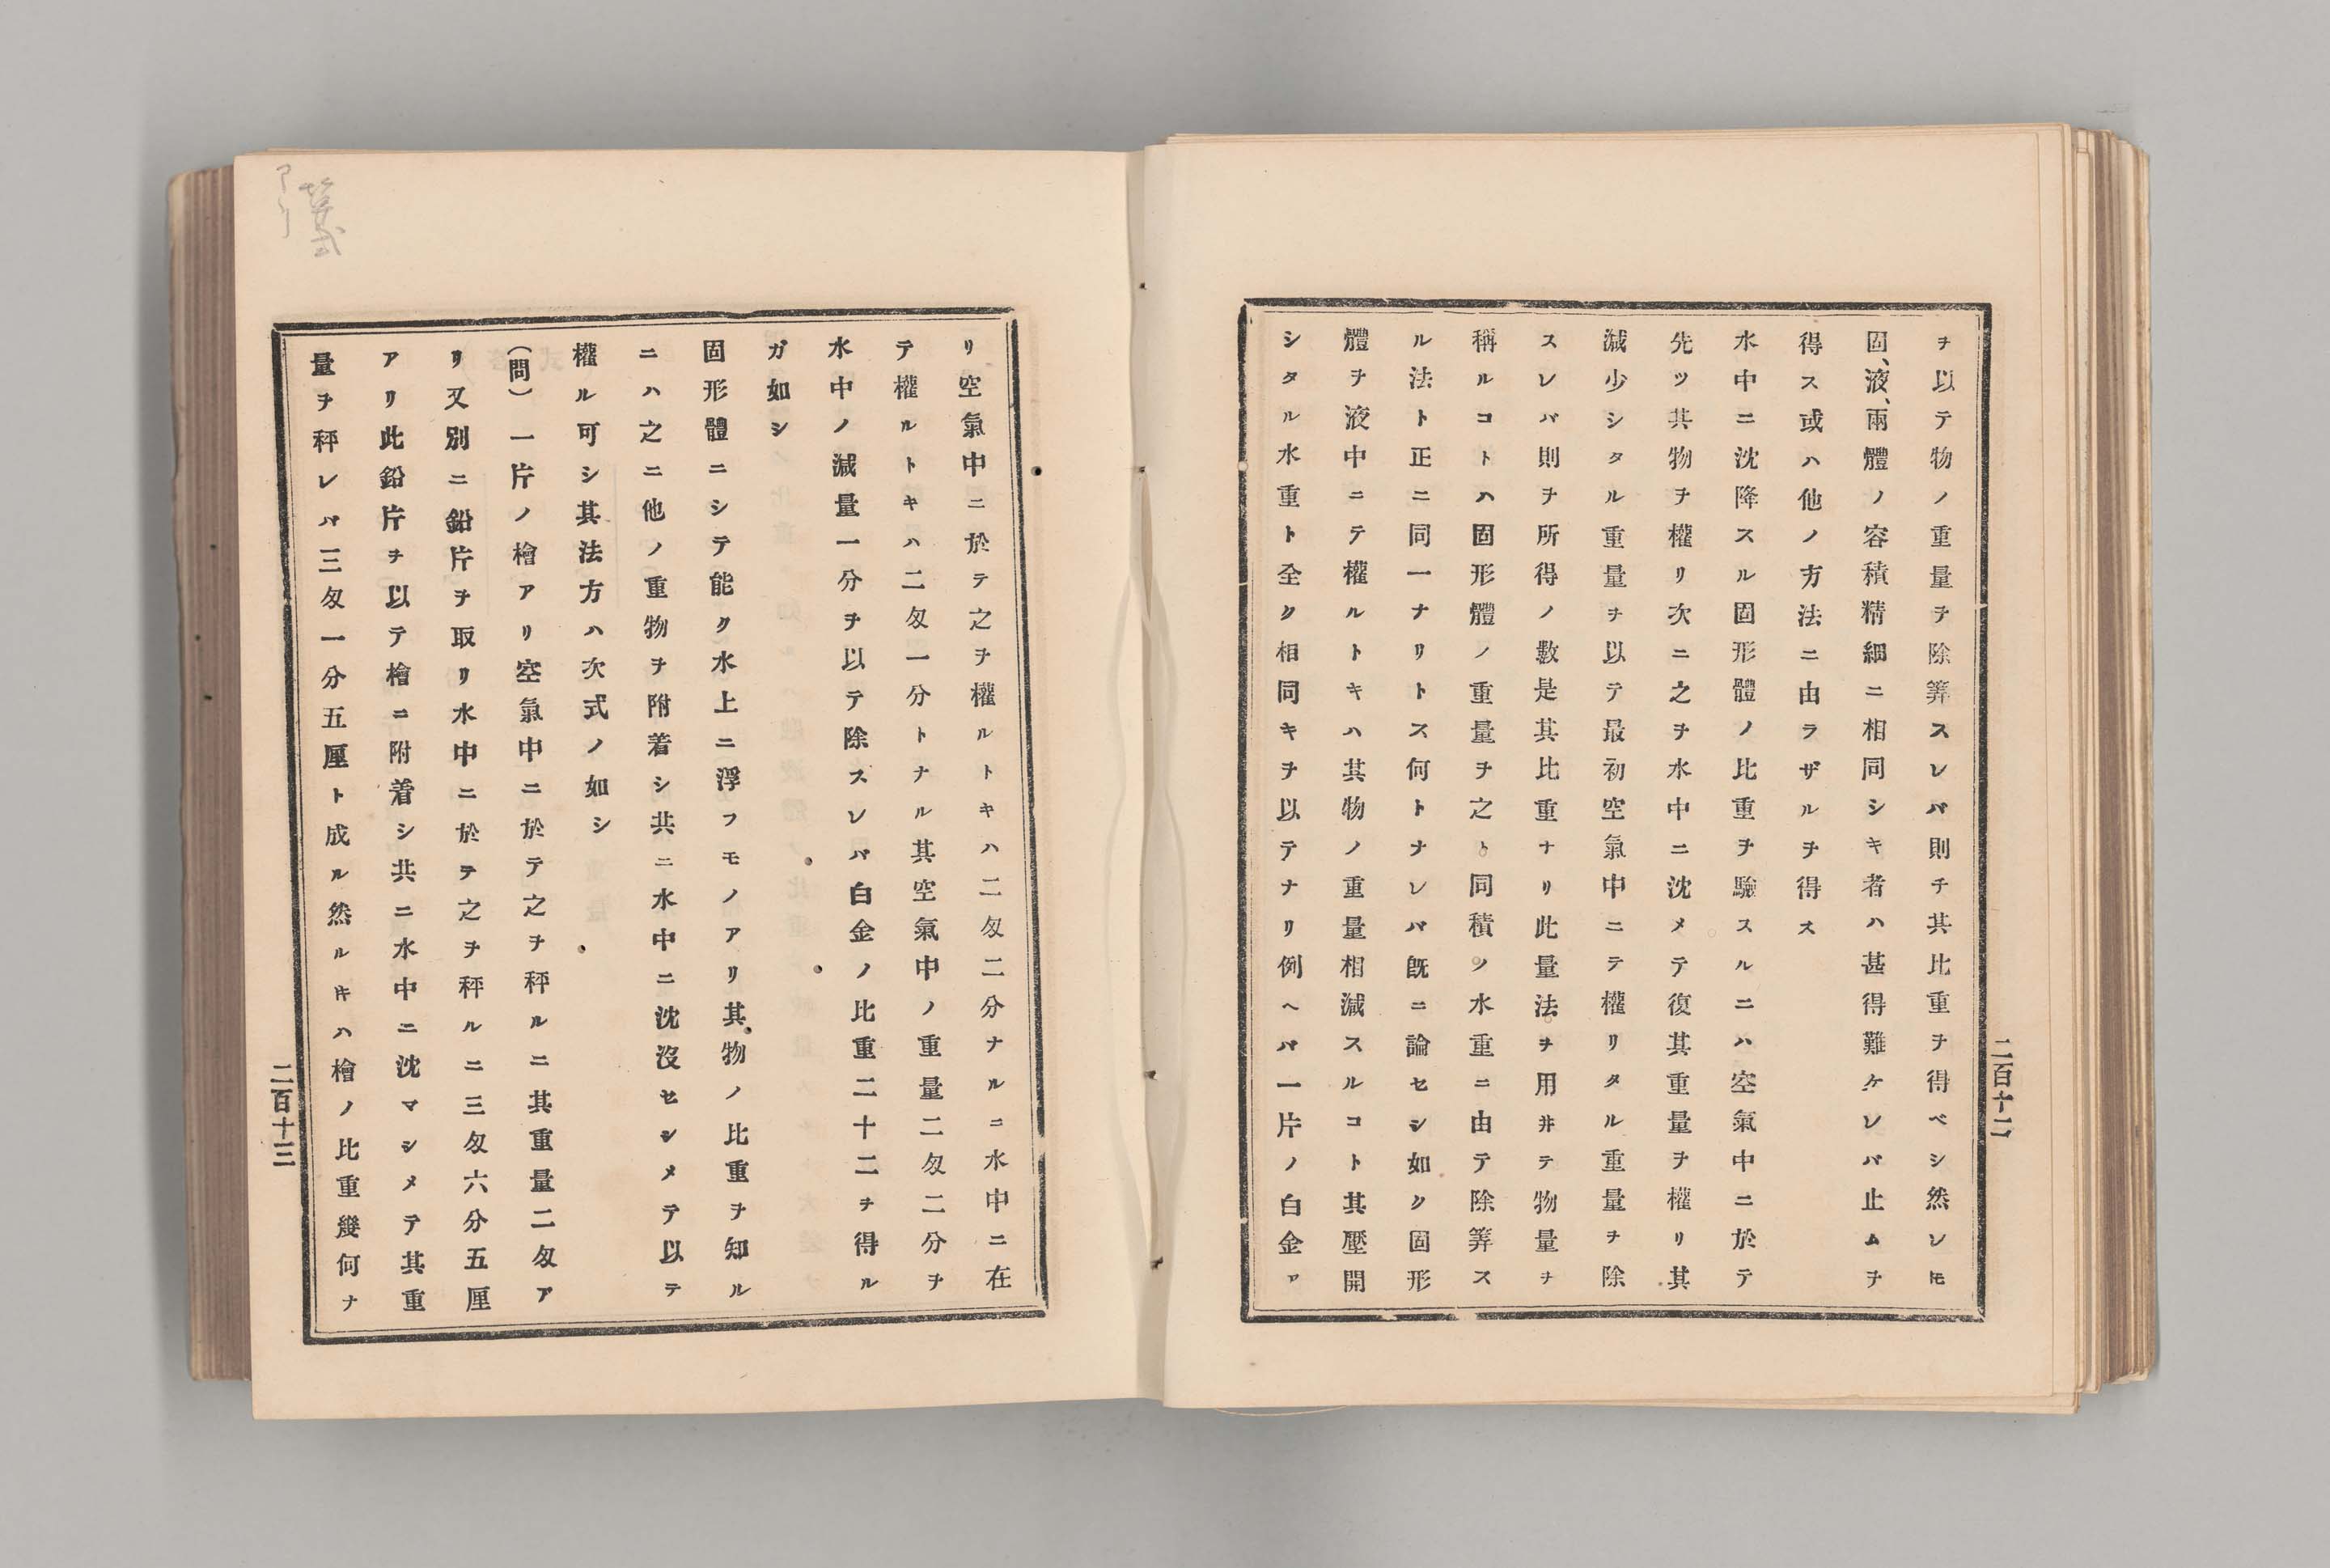 ヲ以テ物ノ重量ヲ除筭スレバ則チ其比重ヲ得ベシ然レ𪜈
固、液、兩體ノ容積精細ニ相同シキ者ハ甚得難ケレバ止ムヲ
得ス或ハ他ノ方法ニ由ラザルヲ得ス
水中ニ沈降スル固形體ノ比重ヲ驗スルニハ空氣中ニ於テ
先ツ其物ヲ權リ次ニ之ヲ水中ニ沈メテ復其重量ヲ權リ其
減少シタル重量ヲ以テ最初空氣中ニテ權リタル重量ヲ除
スレバ則ヲ所得ノ數是其比重ナリ此量法ヲ用井テ物量ヲ
稱ルコトハ固形體ノ重量ヲ之ト同積ノ水重ニ由テ除筭ス
ル法ト正ニ同一ナリトス何トナレバ既ニ論セシ如ク固形
體ヲ液中ニテ權ルトキハ其物ノ重量相減スルコト其壓開
シタル水重ト全ク相同キヲ以テナリ例ヘバ一片ノ白金ア
二百十二
リ空氣中ニ於テ之ヲ權ルトキハ二匁二分ナルニ水中ニ在
テ權ルトキハ二匁一分トナル其空氣中ノ重量二匁二分ヲ
水中ノ減量一分ヲ以テ除スレバ白金ノ比重二十二ヲ得ル
ガ如シ
固形體ニシテ能ク水上ニ浮フモノアリ其物ノ比重ヲ知ル
ニハ之ニ他ノ重物ヲ附着シ共ニ水中ニ沈沒セシメテ以テ
權ル可シ其法方ハ次式ノ如シ
(問)一片ノ檜アリ空氣中ニ於テ之ヲ秤ルニ其重量二匁ア
リ又別ニ鉛片ヲ取リ水中ニ於テ之ヲ秤ルニ三匁六分五厘
アリ此鉛片ヲ以テ檜ニ附着シ共ニ水中ニ沈マシメテ其重
量ヲ秤レバ三匁一分五厘ト成ル然ルキハ檜ノ比重幾何ナ
二百十三